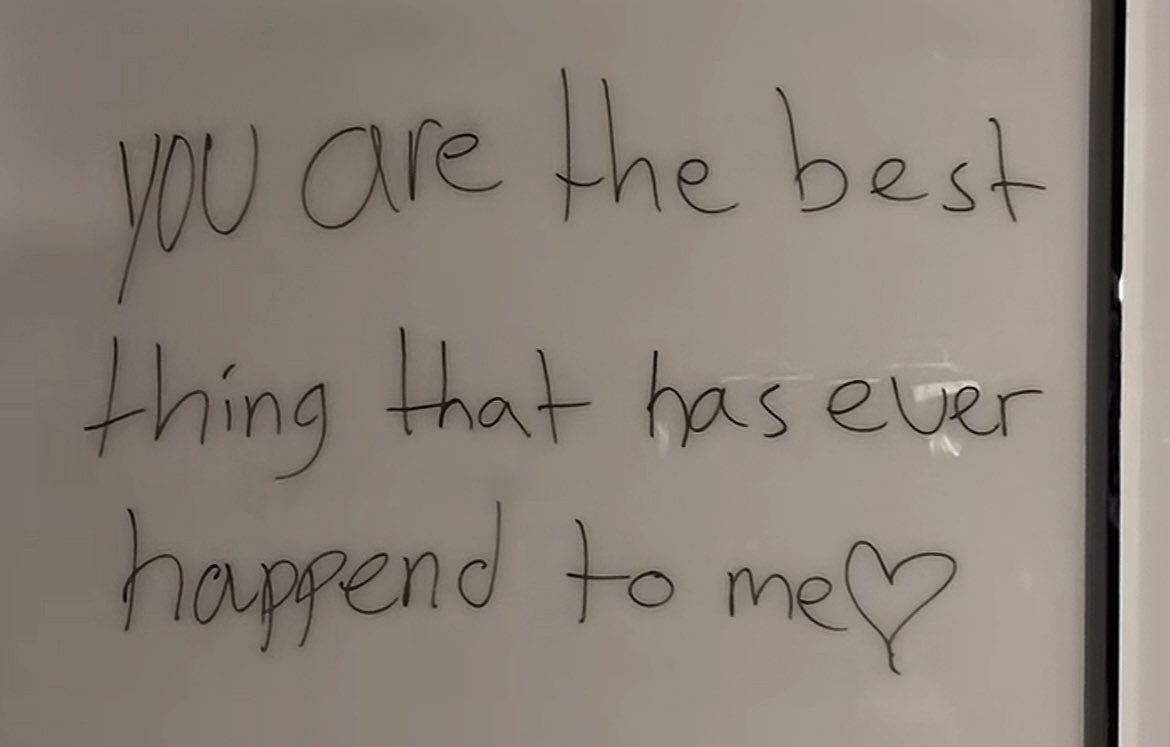 you are the best
thing that has ever
happend to me♡